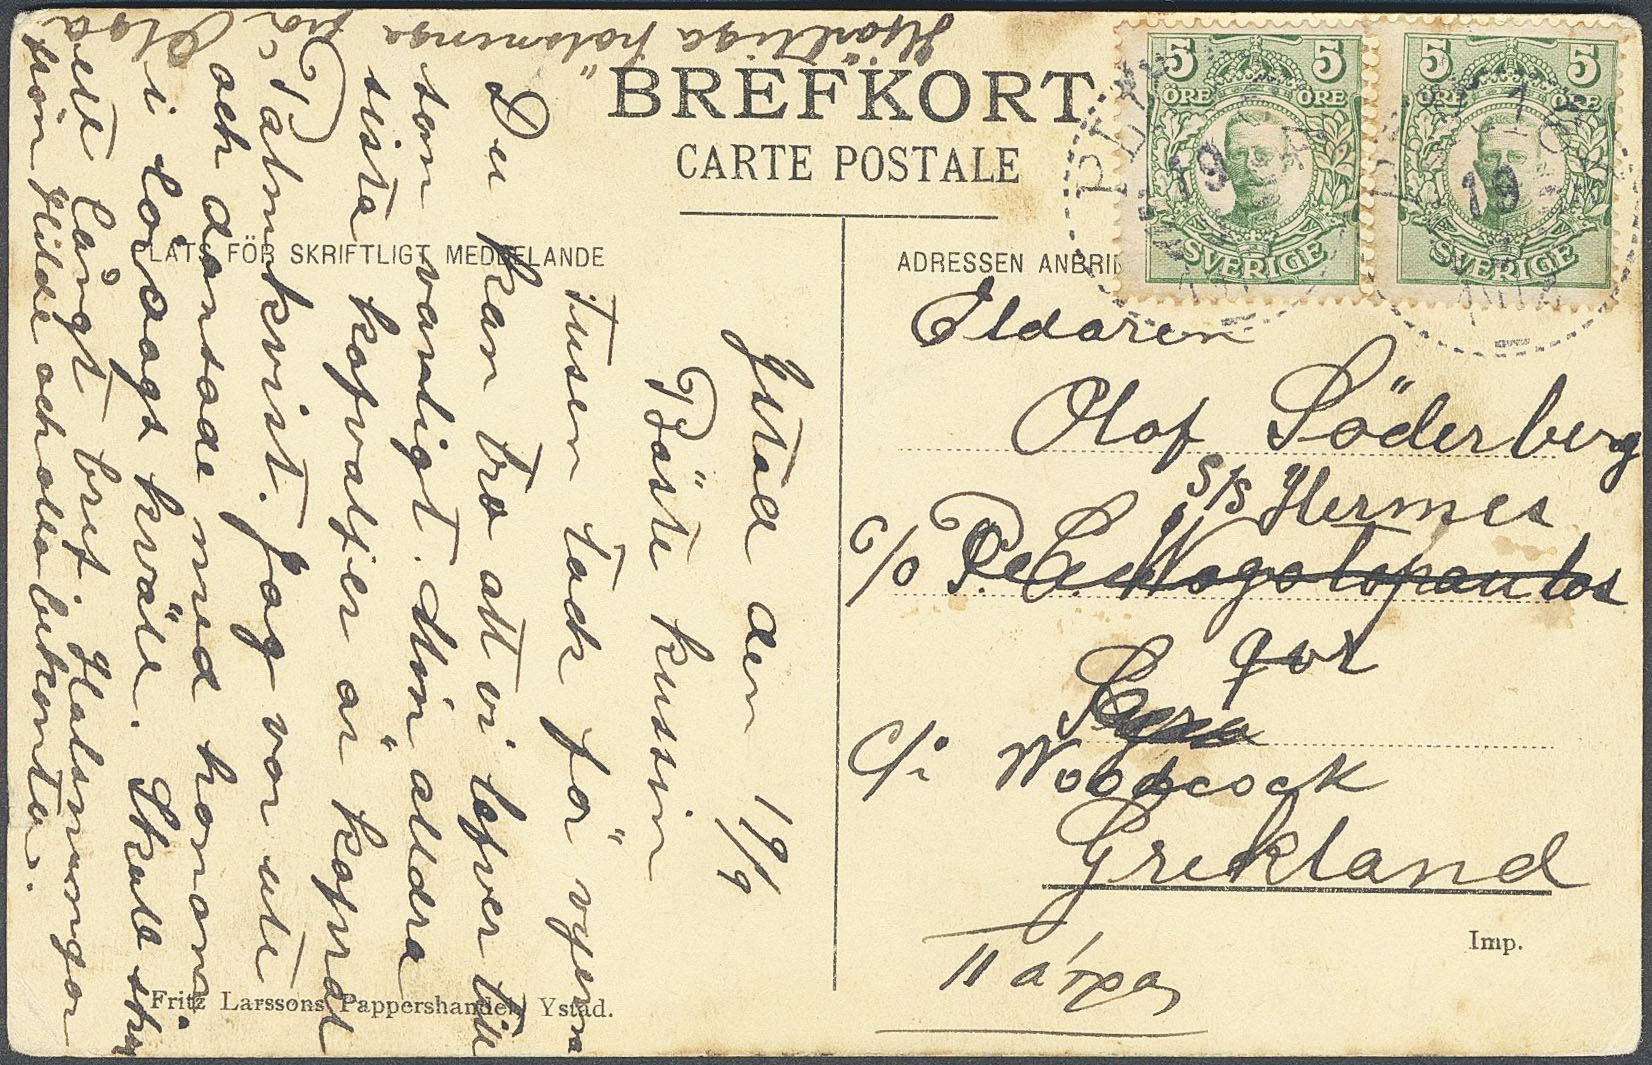 BREFKORT
CARTE POSTALE
PLATS FÖR SKRIFTLIGT MEDDELANDE
ADRESSEN ANBRIN
5 5
ÖRE ÖRE
SVERIGE
5 5
ÖRE ÖRE
SVERIGE
19
19
Ystad den 19/9
Bäste kussin
Tusen tack för vyerna
Du kan tro att vi lefver till
som vanligt. Min alldra
sista kafvaljer är kapral
Palmkvist. Jag var ute
och dansade med honom
i lörsags kväll. Skall skr
ett långt bref Hälsningar
från Hilda och alla bekanta.
Hjärtliga hälsningar från Olga
Eldaren
Olof Söderberg
S/S Hermes
c/o P.
for
Woodcock
Grekland
Πάτρας
Imp.
Fritz Larssons Pappershandel, Ystad.